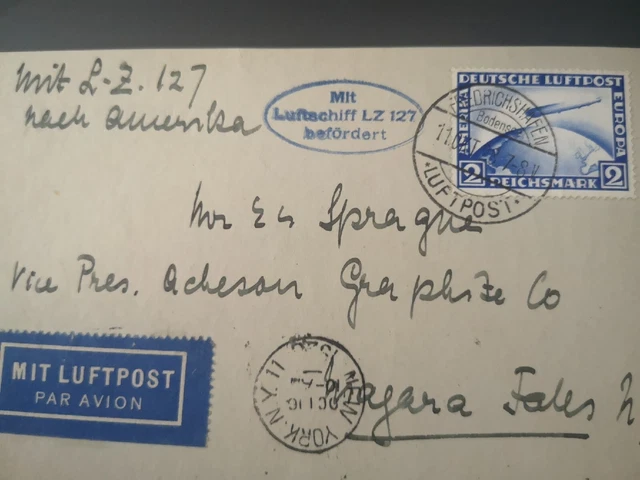 mit L-Z. 127
nach Amerika
Mit
Luftschiff LZ 127
befördert
DEUTSCHE LUFTPOST
EUROPA
AMERIKA
2 REICHSMARK 2
FRIEDRICHSHAFEN
Bodensee
7-8 V
LUFTPOST
Mr E Sprague
Vice Pres. Acheson Graphite Co
Niagara Falls N.
MIT LUFTPOST
PAR AVION
NEW YORK N.Y. 11